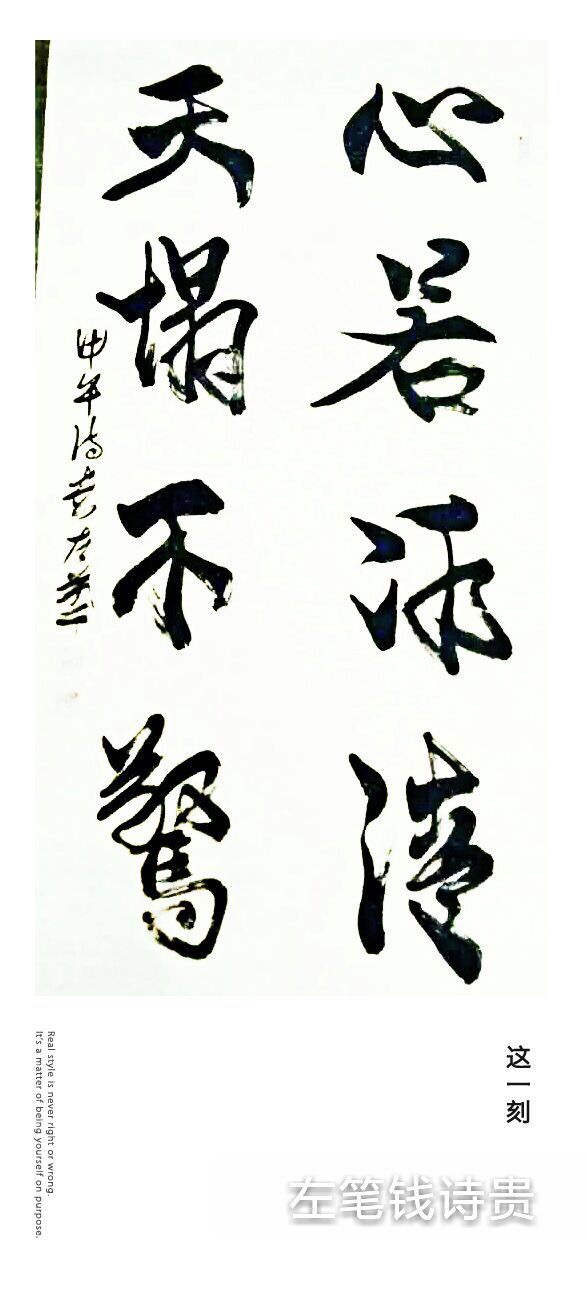 心若冰清
天塌不驚
甲午诗贵左筆
这一刻
左笔钱诗贵
Real style is never right or wrong.
It's a matter of being yourself on purpose.